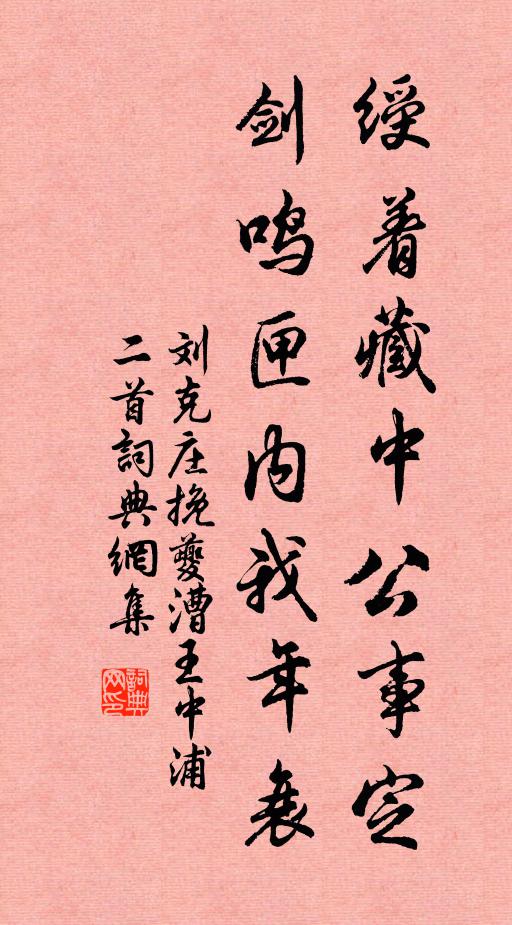 绶着藏中公事定
剑鸣匣内我年衰
刘克庄挽夔漕王中浦
二首詞典網集
詞典
网印